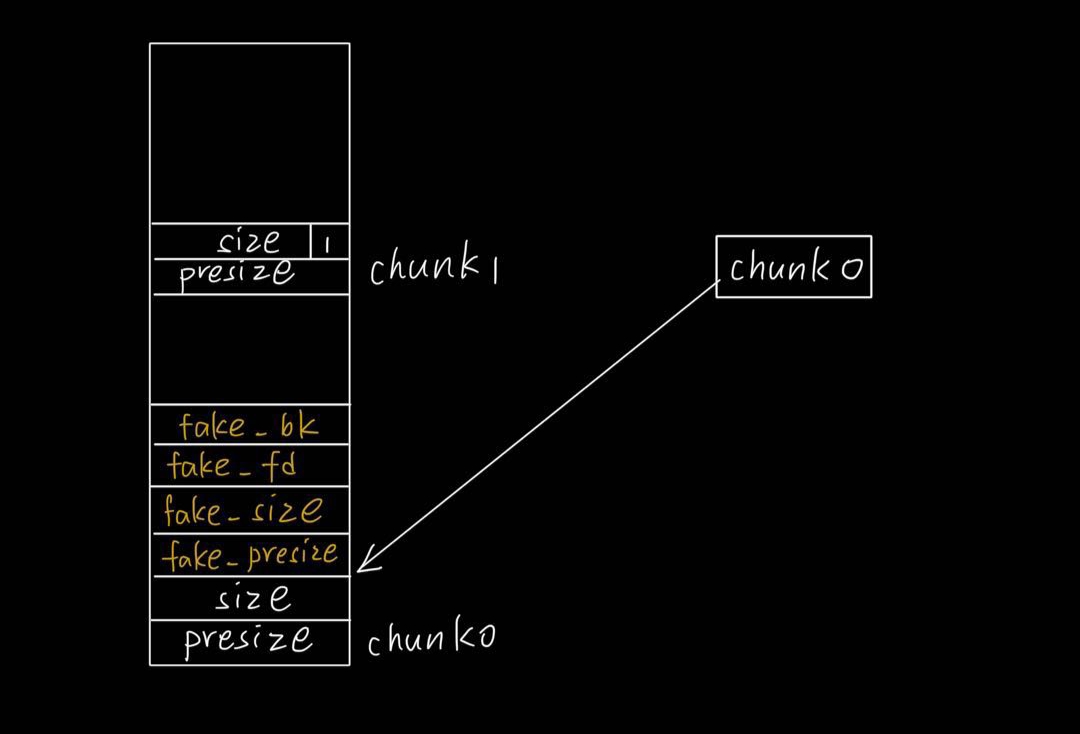 size 1
presize
chunk1
chunk0
fake_bk
fake_fd
fake_size
fake_presize
size
presize
chunk0